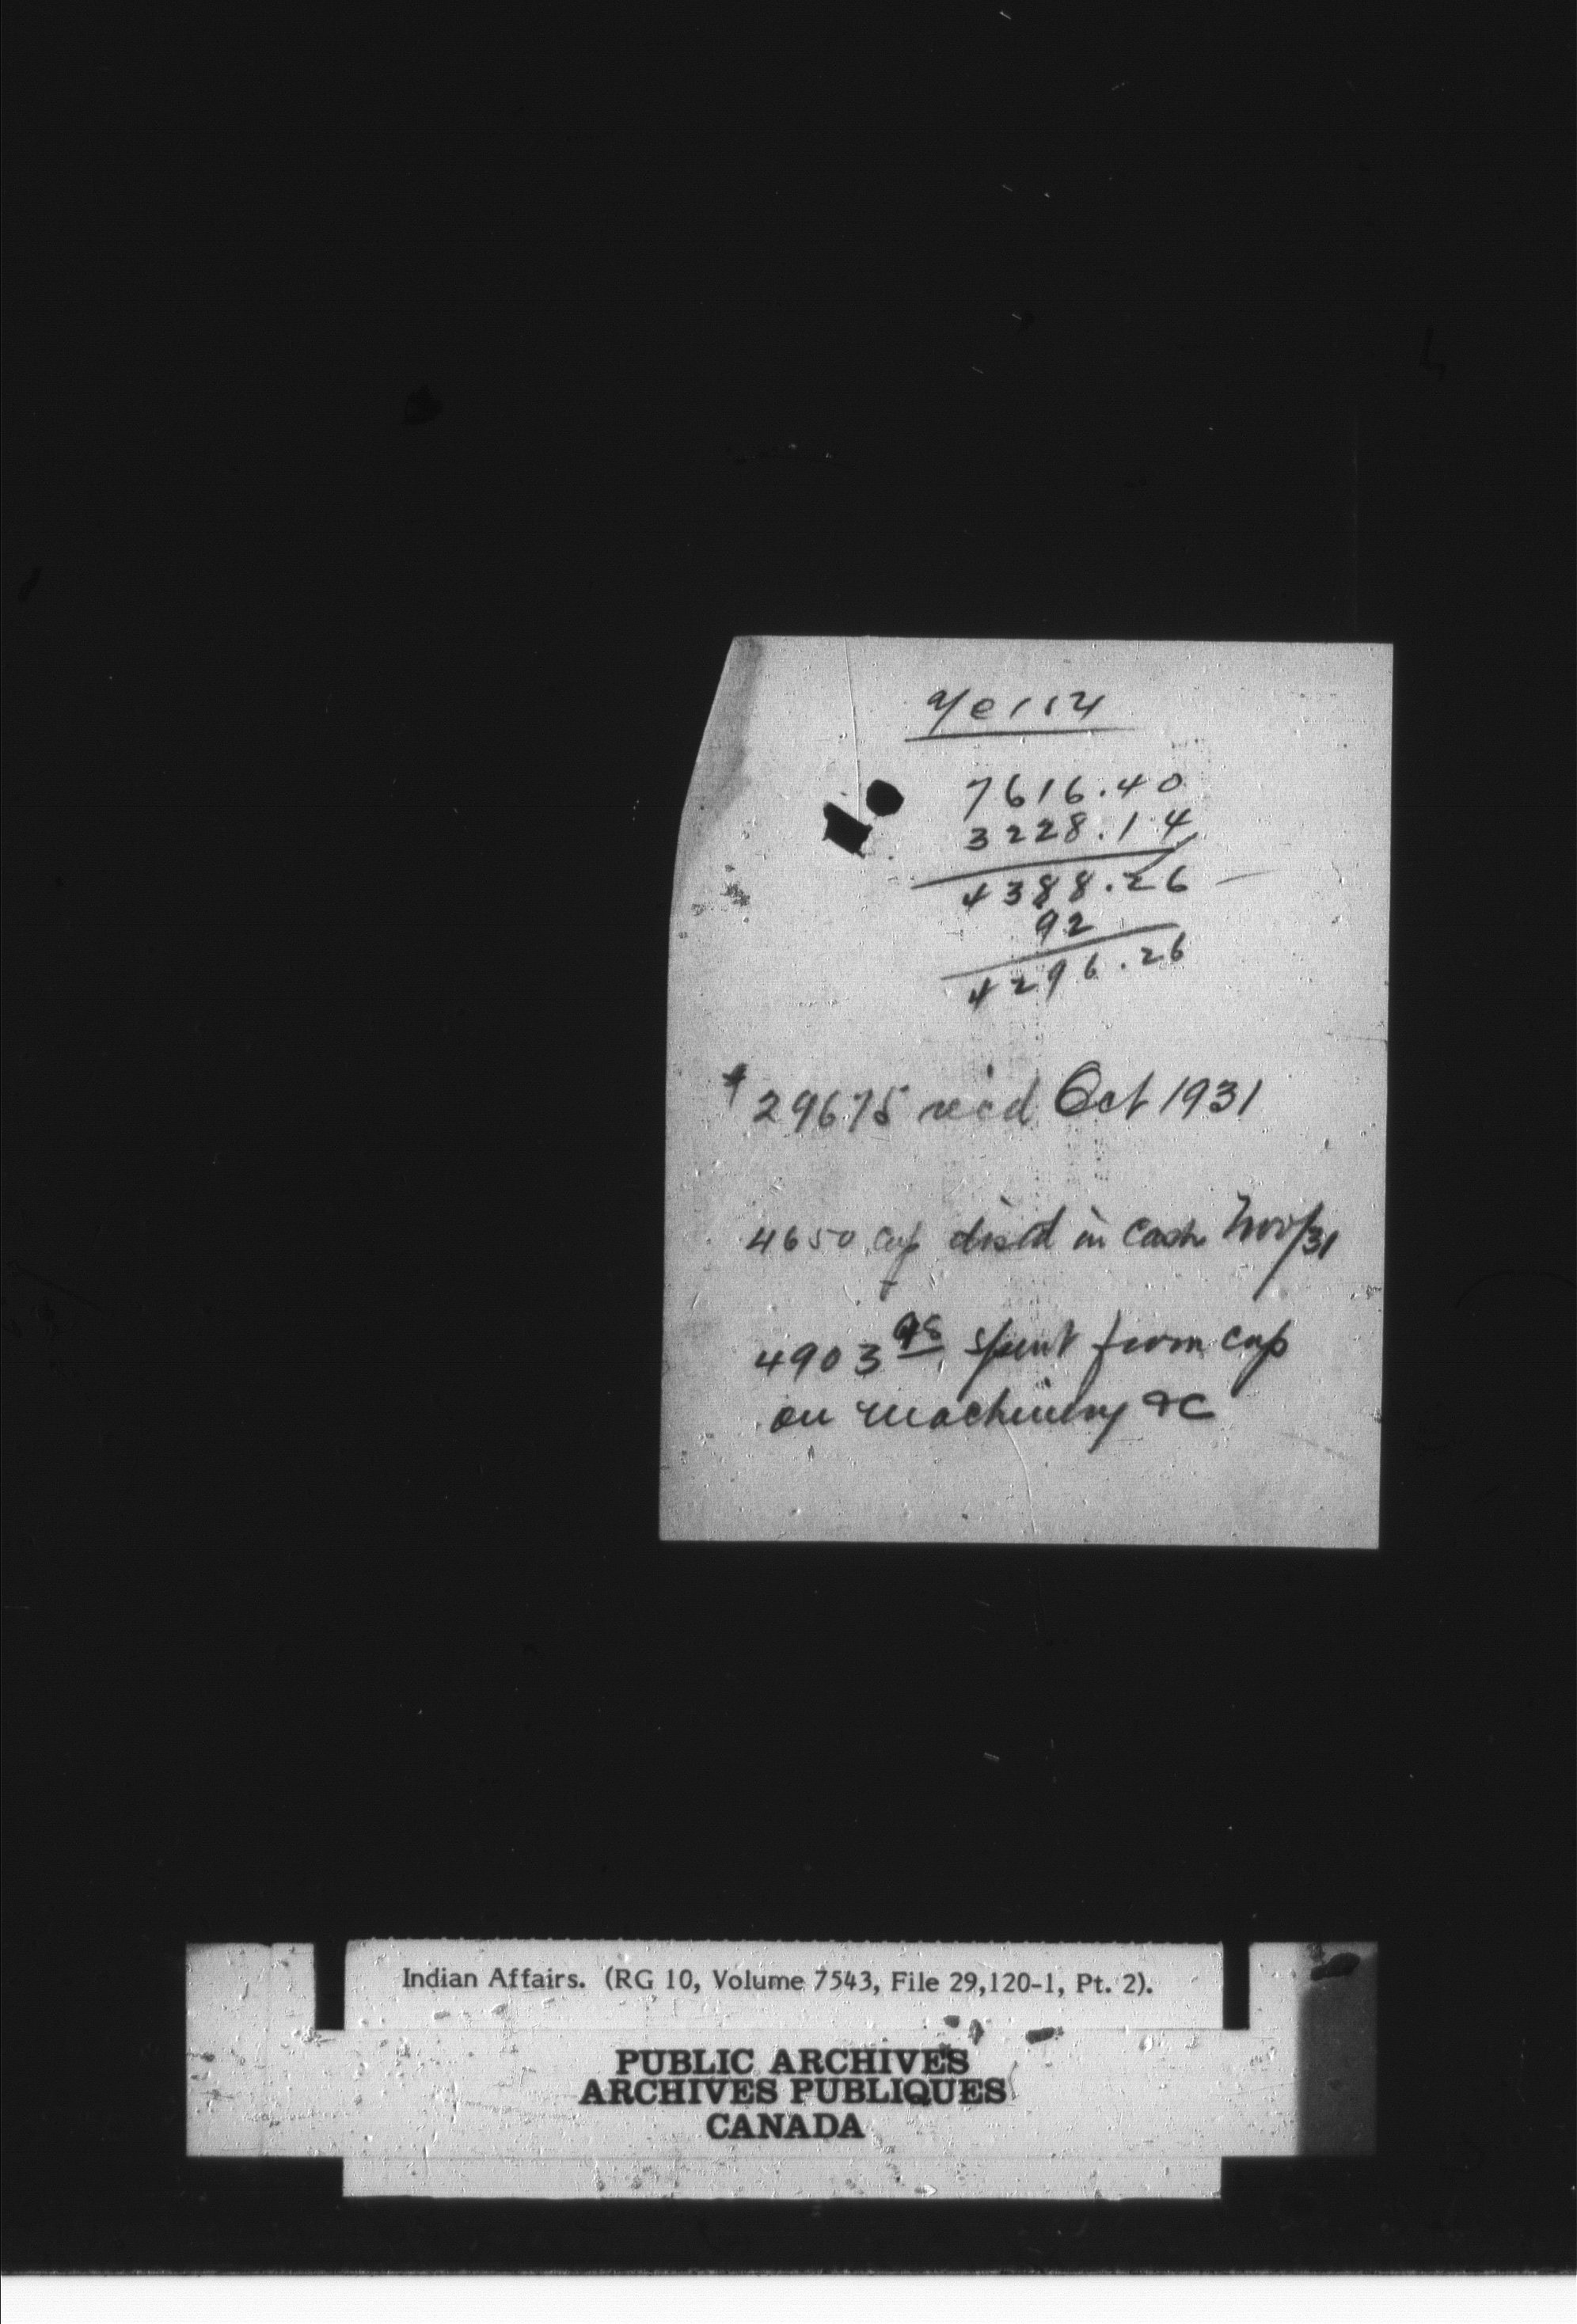 a/c 154
7616.40
3228.14
4388.26
92
4296.26
$29675 rec'd Oct 1931
4650 cap dist'd in cash Nov/31
4903 98 spent from cap
on machinery &c
Indian Affairs. (RG 10, Volume 7543, File 29,120-1, Pt. 2).
PUBLIC ARCHIVES
ARCHIVES PUBLIQUES
CANADA